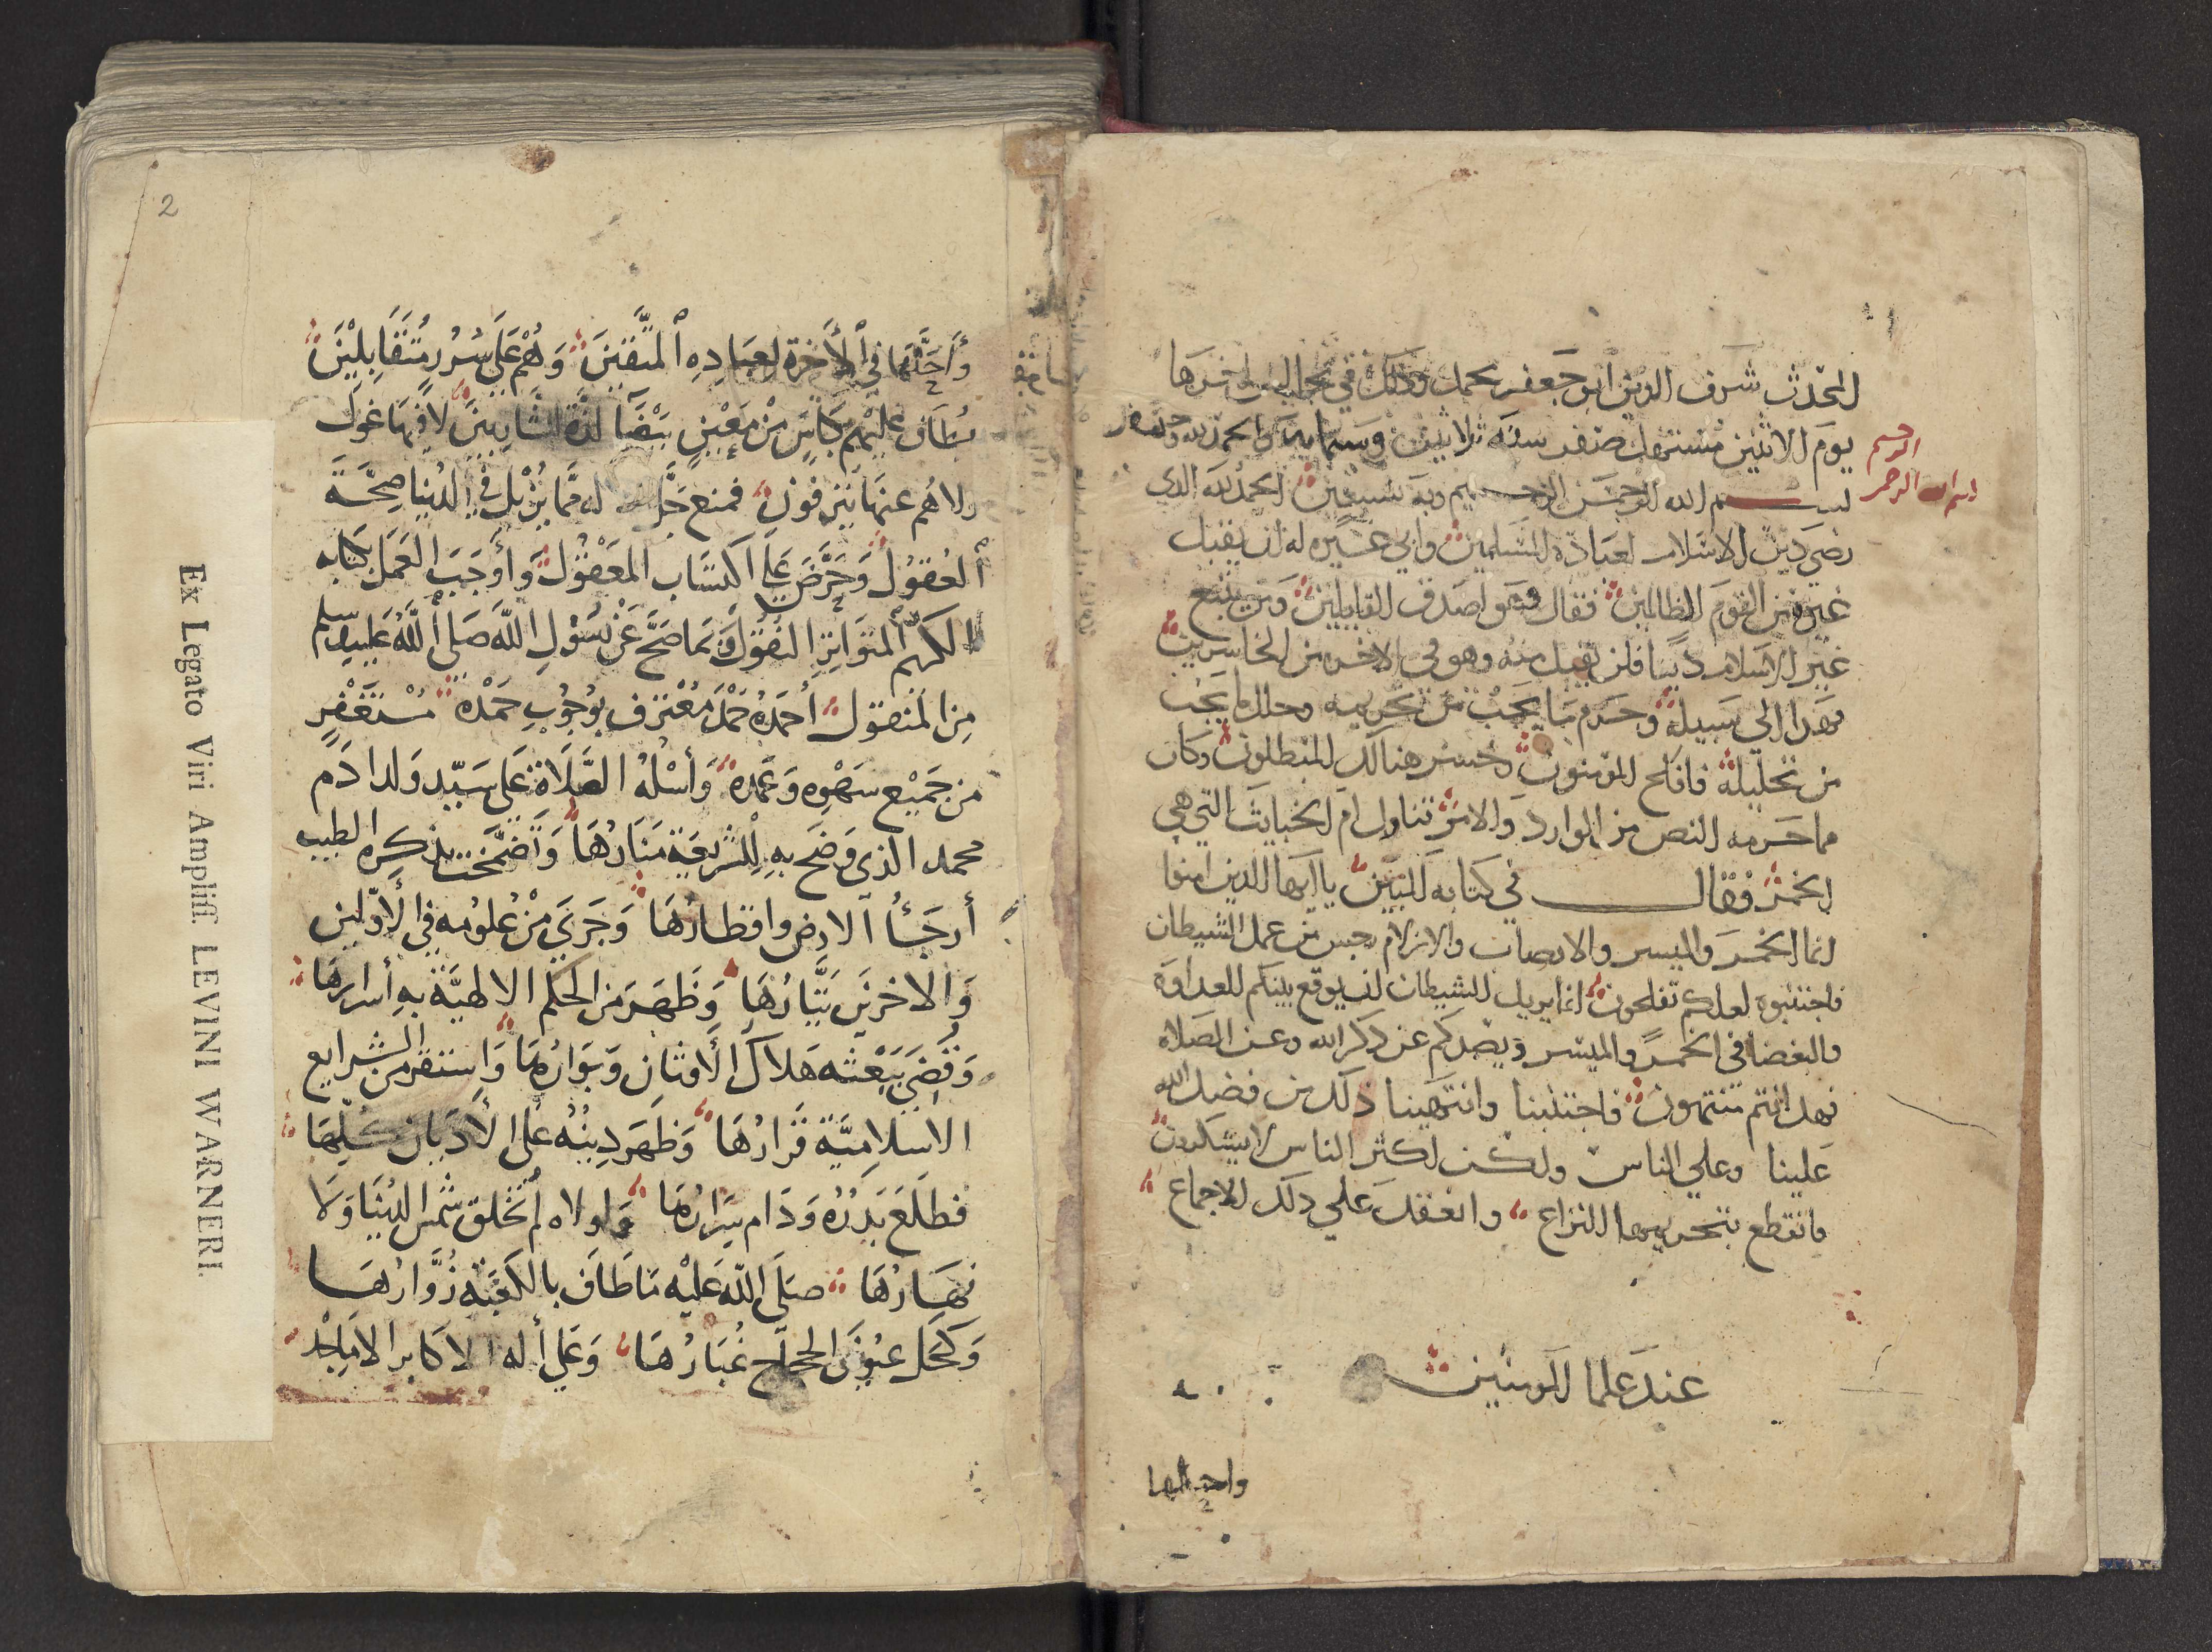 المحدث شرف الدين ابو جعفر محمد وذلك في مجالس اخرها
يوم الاثنين مستهل صفر سنة ثلاثين وستمايه والحمد لله وحده
بسم الله الرحمن الرحيم
بسم الله الرحمن الرحيم وبه نستعين الحمد لله الذي
رضي دين الاسلام لعباده المسلمين وابي غيره له ان يقبل
غيره من القوم الظالمين فقال وهو اصدق القايلين ومن يبتغ
غير الاسلام دينا فلن يقبل منه وهو في الاخره من الخاسرين
فهدا الى سبيله وحرم ما يجب من تحريمه وحلل ما يجب
من تحليله فافلح المومنون وخسر هنالك المبطلون وكان
مما حرمه النص من الموارد والامر تناول ام الخبايث التي هي
الخمر فقال في كتابه المبين يا ايها الذين امنوا
انما الخمر والميسر والانصاب والازلام رجس من عمل الشيطان
فاجتنبوه لعلكم تفلحون انما يريد الشيطان ان يوقع بينكم العداوة
والبغضا في الخمر والميسر ويصدكم عن ذكر الله وعن الصلاة
فهل انتم منتهون فاجتنبنا وانتهينا ذلك من فضل الله
علينا وعلي الناس ولكن اكثر الناس لا يشكرون
فانقطع بتحريمها النزاع وانعقد علي ذلك الاجماع
عند علما المومنين
واحلها
2
وأحلها في الأخرة لعباده المتقين وهم على سرر متقابلين
يطاف عليهم بكاس من معين بيضآ لذة للشاربين لا فيها غول
ولا هم عنها ينزفون فمنع جل جلاله مما يزيل في الدنيا صحة
العقول وحرض على اكتساب المعقول وأوجب العمل بكتابه
الكريم المتواتر النقول وبما صح عن رسول الله صلى الله عليه وسلم
من المنقول أحمده حمد معترف بوجوب حمده مستغفر
من جميع سهوه وعمده وأسله الصلاة على سيد ولد ادم
محمد الذى وضح به للشريعة منارها وتضمخت بذكره الطيب
أرجاء الارض واقطارها وجرى من علومه في الأولين
والاخرين تيارها وظهر من الحكم الالهية به أسرارها
وقضي ببعثه هلاك الأوثان وبوارها واستقر من الشرايع
الاسلامية قرارها وظهر دينه على الأديان كلها
فطلع بدره ودام سرارها ولولاه لم تخلق شمس الدنيا ولا
نهارها صلى الله عليه ما طاف بالكعبة زوارها
وكحل عيون الحجاج غبارها وعلي أله الاكابر الاماجد
Ex Legato Viri Ampliss. LEVINI WARNERI.